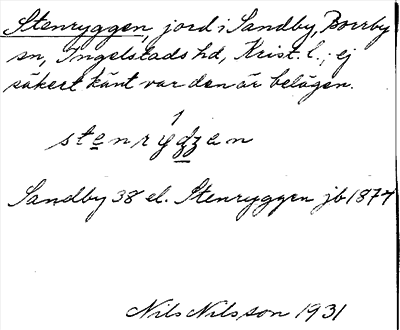 Stenryggen, jord i Sandby, Borrby
sn, Ingelstads hd, Krist. l.; ej
säkert känt var den är belägen.
stenrydzen
Sandby 38 el. Stenryggen jb 1874
Nils Nilsson 1931